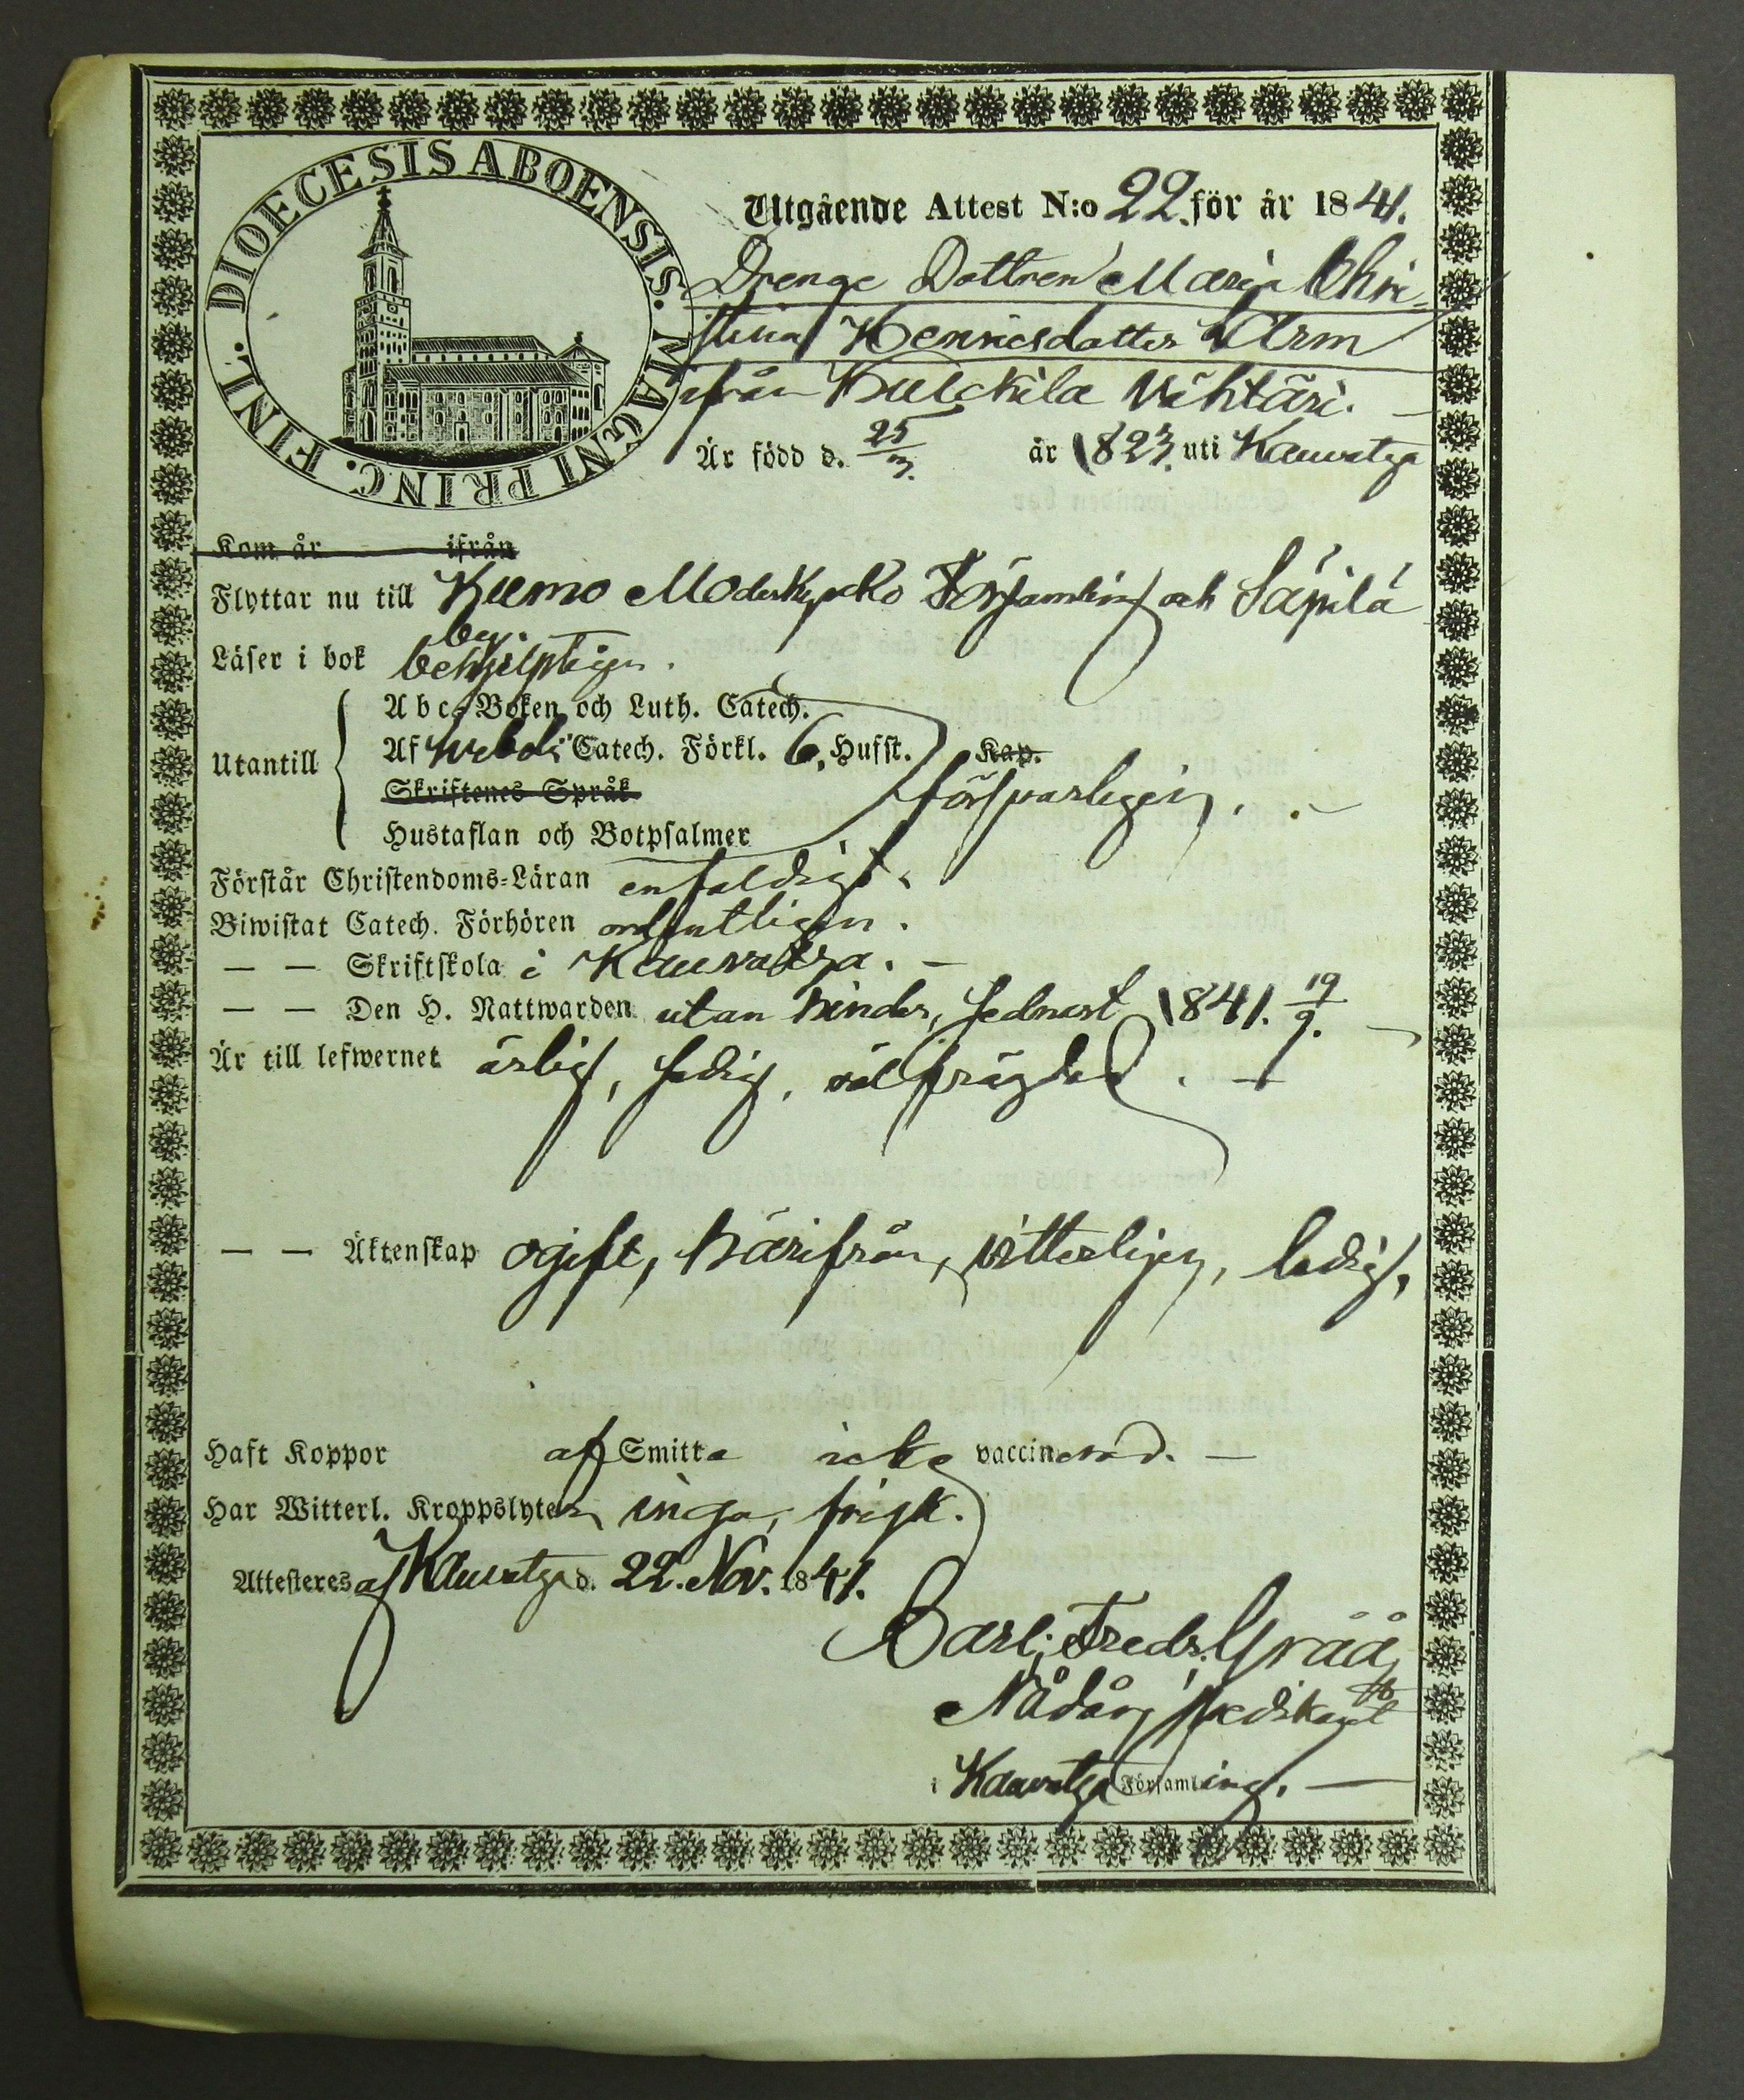 DIOECESIS ABOENSIS. MAGNI PRINC. FINL.
Utgående Attest N:o 22. för år 1841.
Drenge Dottren Maria Chri-
stina Henricsdotter Arm
ifrån Kulckila Vähtäri. —
Är född d. 25/3. år 1823. uti Kauvatza
Kom år ifrån
Flyttar nu till Kumo Moderkyrko Församling och Säpilä
by.
Läser i bok behjelpligen.
Abc-Boken och Luth. Catech.
Utantill Af Catech. Förkl. 6. Hufst. Kap.
Skriftenes Språk försvarligen. —
Hustaflan och Botpsalmer
Förstår Christendoms-Läran enfaldigt.
Biwistat Catech. Förhören ordentligen.
— — Skriftskola i Kauvatza. —
— — Den H. Nattwarden utan hinder, sednast 1841. 19/9. —
Är till lefwernet ärlig, sedig, välfrägdad. —
— — Äktenskap ogift, härifrån, vitterligen, ledig.
Haft Koppor af Smitta icke vaccinerad. —
Har Witterl. Kroppslyten inga, frisk.
Attesteres af Kauvatza d. 22. Nov. 1841.
Carl Fredr. Gråå
Nådårs predikant
i Kauvatza Församling. —